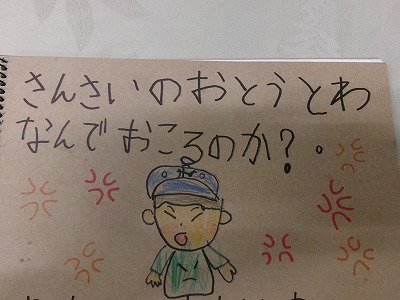 さんさいのおとうとわ
なんでおころのか?.